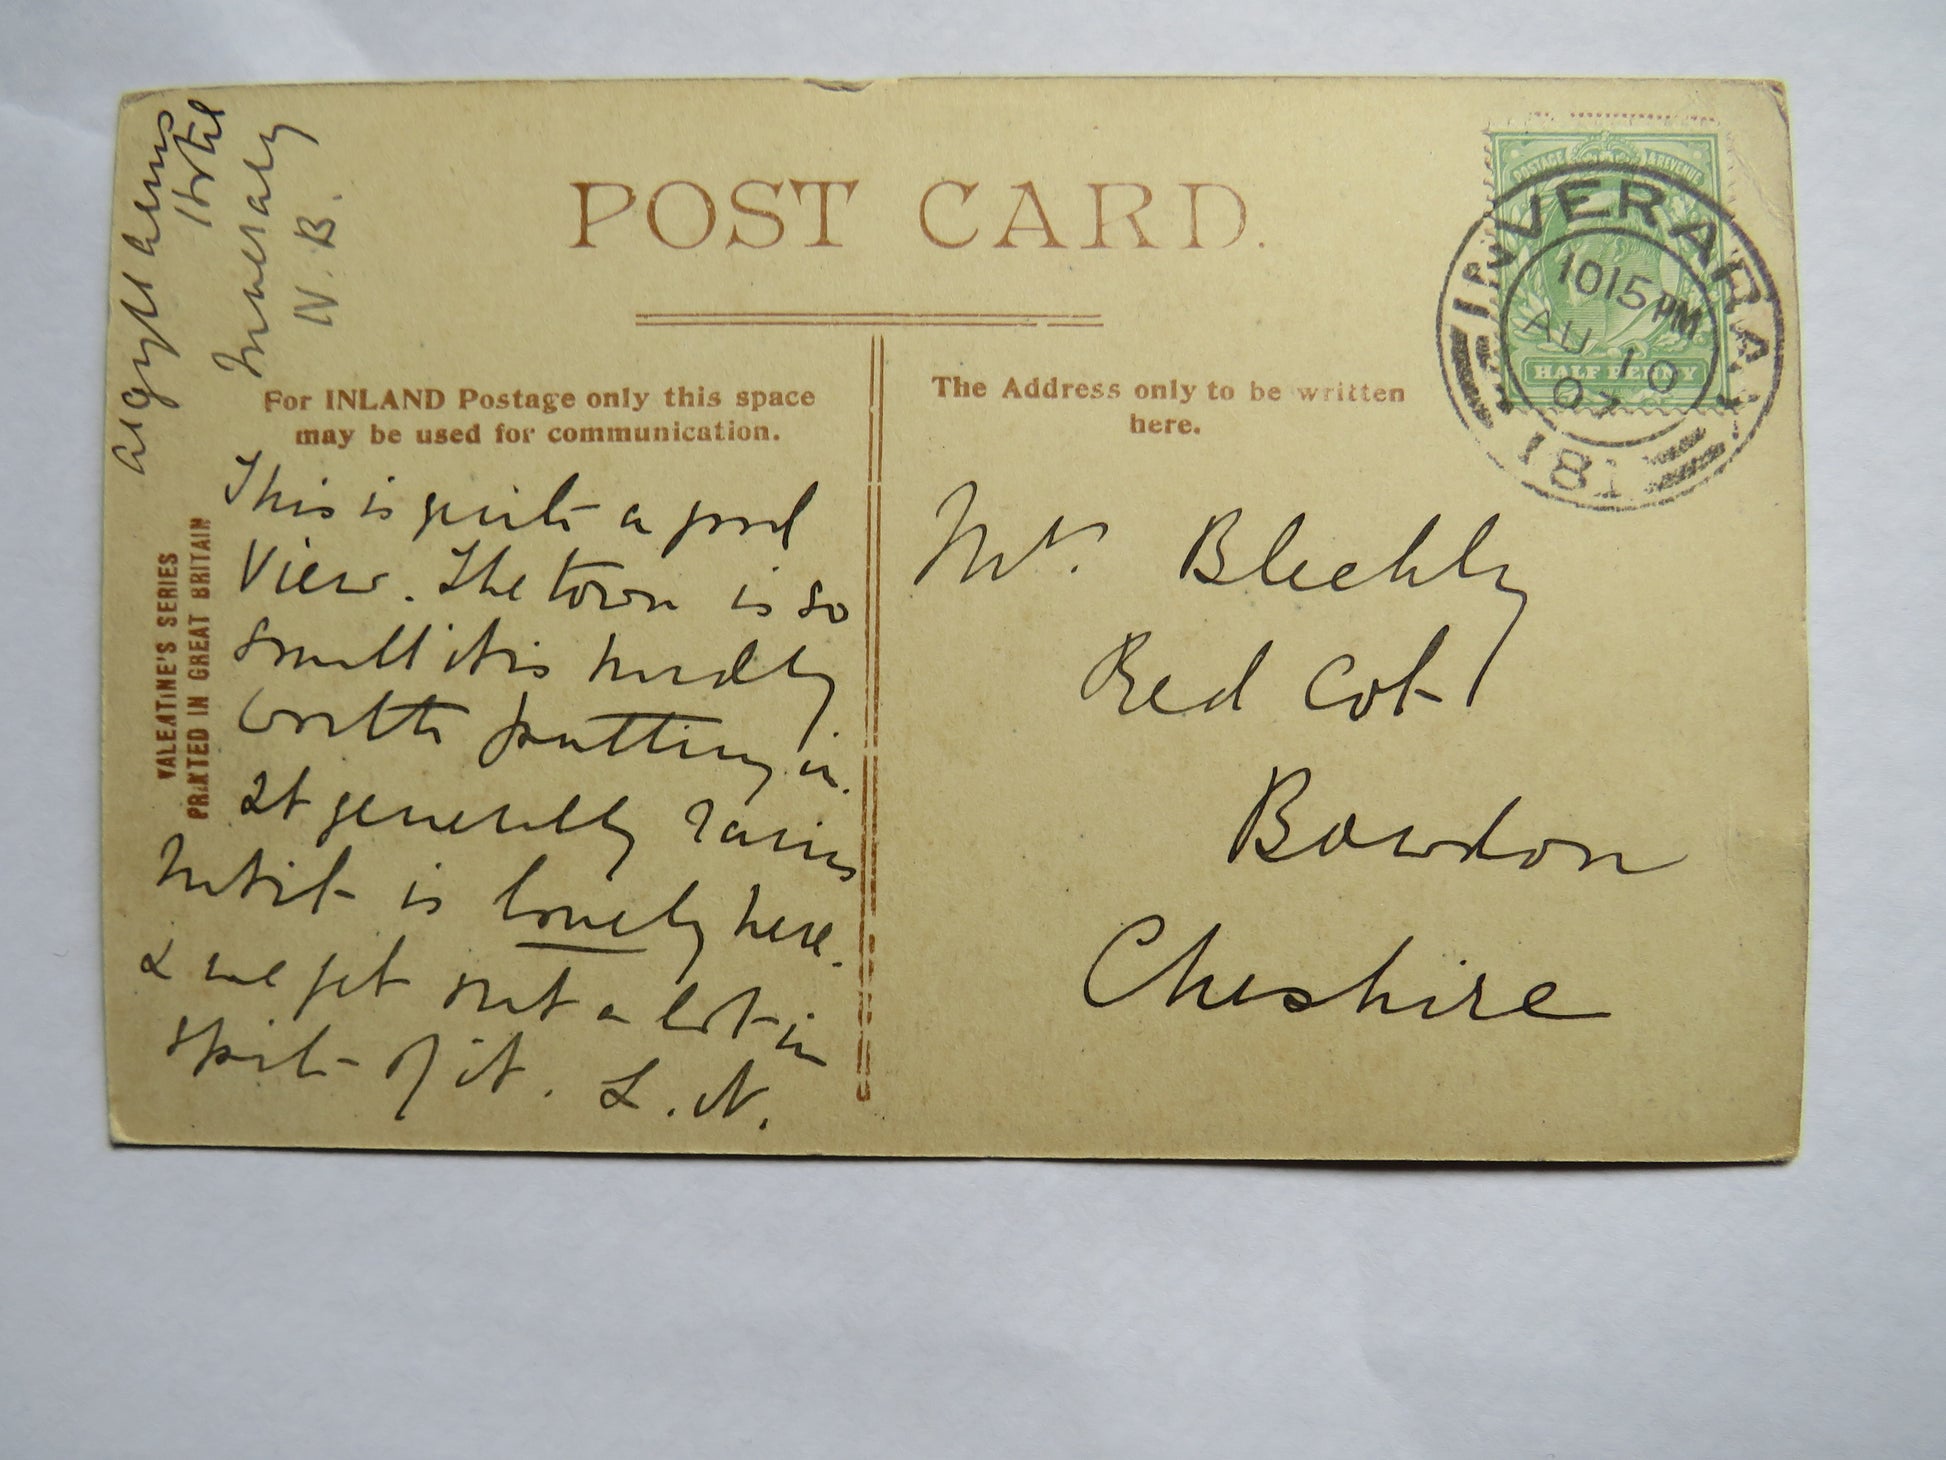 Argyll Arms
Hotel
Inveraray
N.B.
POST CARD.
For INLAND Postage only this space
may be used for communication.
The Address only to be written
here.
POSTAGE & REVENUE
HALF PENNY
INVERARAY
1015 PM
AU 10
07
181
VALENTINE'S SERIES
PRINTED IN GREAT BRITAIN
This is quite a good
View. The town is so
small it is hardly
worth putting in.
It generally rains
but it is lovely here.
& we get out a lot in
spite of it. L. N.
Mrs. Blechly
Red Cot
Bowdon
Cheshire